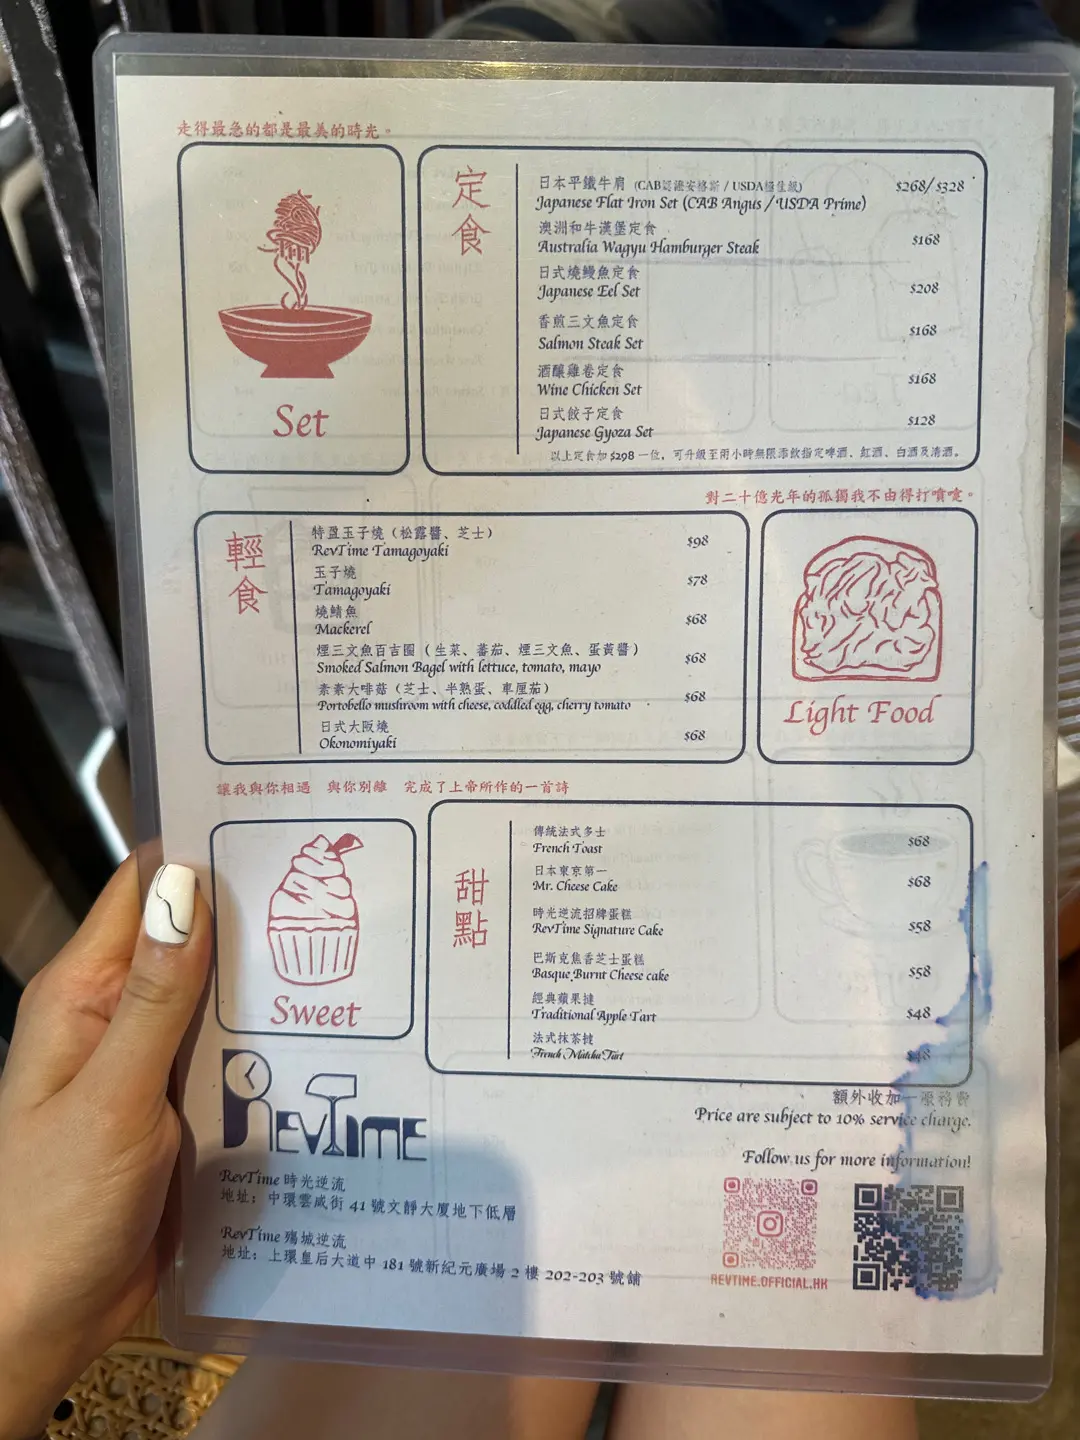 走得最急的都是最美的時光。
Set
定食
日本平鐵牛肩 (CAB認證安格斯 / USDA極佳級) $268/$328
Japanese Flat Iron Set (CAB Angus / USDA Prime)
澳洲和牛漢堡定食
Australia Wagyu Hamburger Steak $168
日式燒鰻魚定食
Japanese Eel Set $208
香煎三文魚定食
Salmon Steak Set $168
酒釀雞卷定食
Wine Chicken Set $168
日式餃子定食
Japanese Gyoza Set $128
以上定食加 $298 一位，可升級至兩小時無限添飲指定啤酒、紅酒、白酒及清酒。
對二十億光年的孤獨我不由得打噴嚏。
輕食
特盈玉子燒（松露醬、芝士）
RevTime Tamagoyaki $98
玉子燒
Tamagoyaki $78
燒鯖魚
Mackerel $68
煙三文魚百吉圈（生菜、蕃茄、煙三文魚、蛋黃醬）
Smoked Salmon Bagel with lettuce, tomato, mayo $68
素素大啡菇（芝士、半熟蛋、車厘茄）
Portobello mushroom with cheese, coddled egg, cherry tomato $68
日式大阪燒
Okonomiyaki $68
Light Food
讓我與你相遇 與你別離 完成了上帝所作的一首詩
Sweet
甜點
傳統法式多士
French Toast $68
日本東京第一
Mr. Cheese Cake $68
時光逆流招牌蛋糕
RevTime Signature Cake $58
巴斯克焦香芝士蛋糕
Basque Burnt Cheese cake $58
經典蘋果撻
Traditional Apple Tart $48
法式抹茶撻
French Matcha Tart $48
額外收加一服務費
Price are subject to 10% service charge.
Follow us for more information!
REVTIME
RevTime 時光逆流
地址：中環雲咸街 41 號文靜大廈地下低層
RevTime 殤城逆流
地址：上環皇后大道中 181 號新紀元廣場 2 樓 202-203 號舖
REVTIME.OFFICIAL.HK